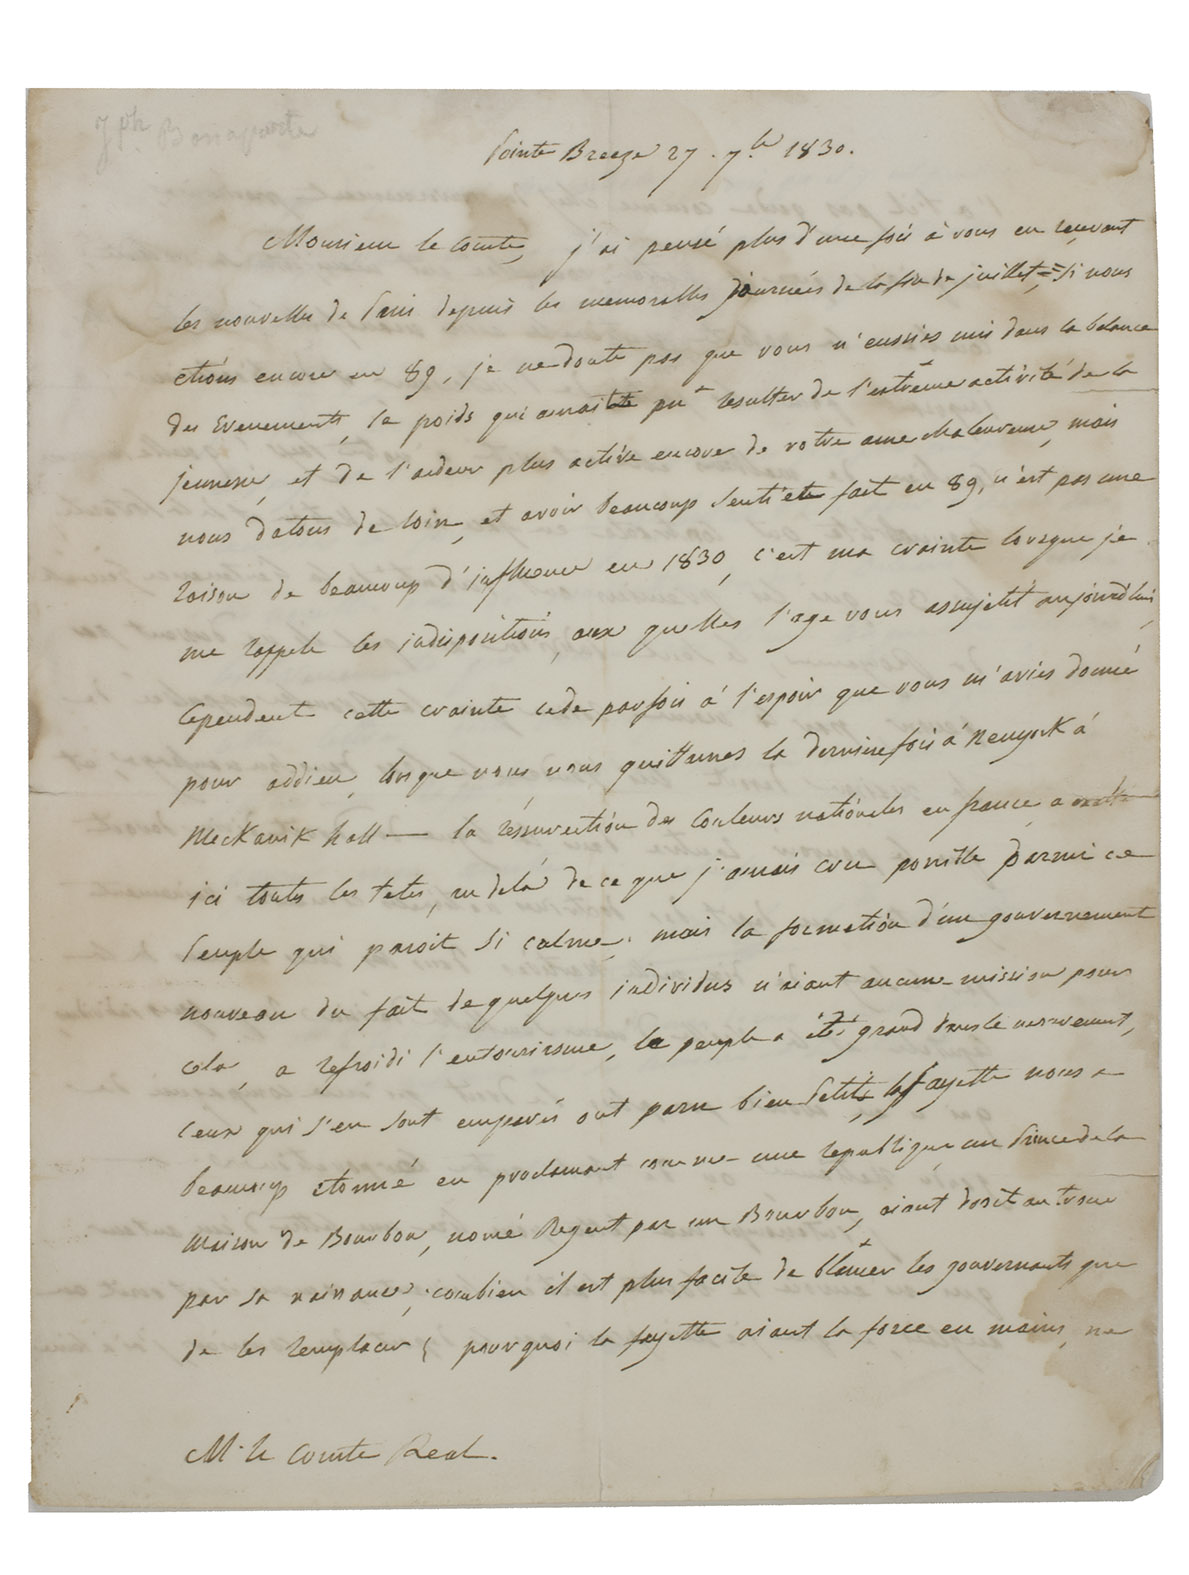 Jph. Bonaparte
Pointe Breeze 27. 7.bre 1830.
Monsieur le comte, j'ai pensé plus d'une fois à vous en recevant
les nouvelles de Paris depuis les memorables journées de la fin de juillet = si nous
etions encore en 89, je ne doute pas que vous n'eussies mis dans la balance
des Evenements, le poids qui auroit pu resulter de l'extrême activité de la
jeunesse, et de l'ardeur plus active encore de votre ame chaleureuse, mais
nous datons de loin, et avoir beaucoup senti et fait en 89, n'est pas une
raison de beaucoup d'influence en 1830, c'est ma crainte lorsque je
me rappele les indispositions, aux quelles l'age vous assujetit aujourd'hui,
Cependent cette crainte cede parfois à l'espoir que vous m'avies donné
pour addieu, lorsque nous nous quittames la derniere fois à Newyork à
Meckanik hall — la résurrection des Couleurs nationales en france a
ici touts les tetes, au delà de ce que j'aurais cru possible parmi ce
Peuple qui paroit si calme, mais la formation d'un gouvernement
nouveau du fait de quelques individus n'aiant aucune mission pour
cela, a refroidi l'entousiasme, le peuple a été grand dans le mouvement,
ceux qui s'en sont emparés ont paru bien Petits, lafayette nous a
beaucoup etonné en proclamant comme une republique un Prince de la
maison de Bourbon, nomé Regent par un Bourbon, aiant droit au trone
par sa naissance, combien il est plus facile de blâmer les gouvernants que
de les remplacer; pourquoi la fayette aiant la force en mains, ne
M. le comte Real.